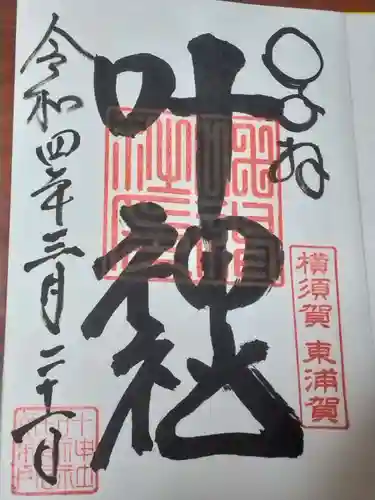 奉拝
横須賀 東浦賀
叶神社
令和四年三月二十一日